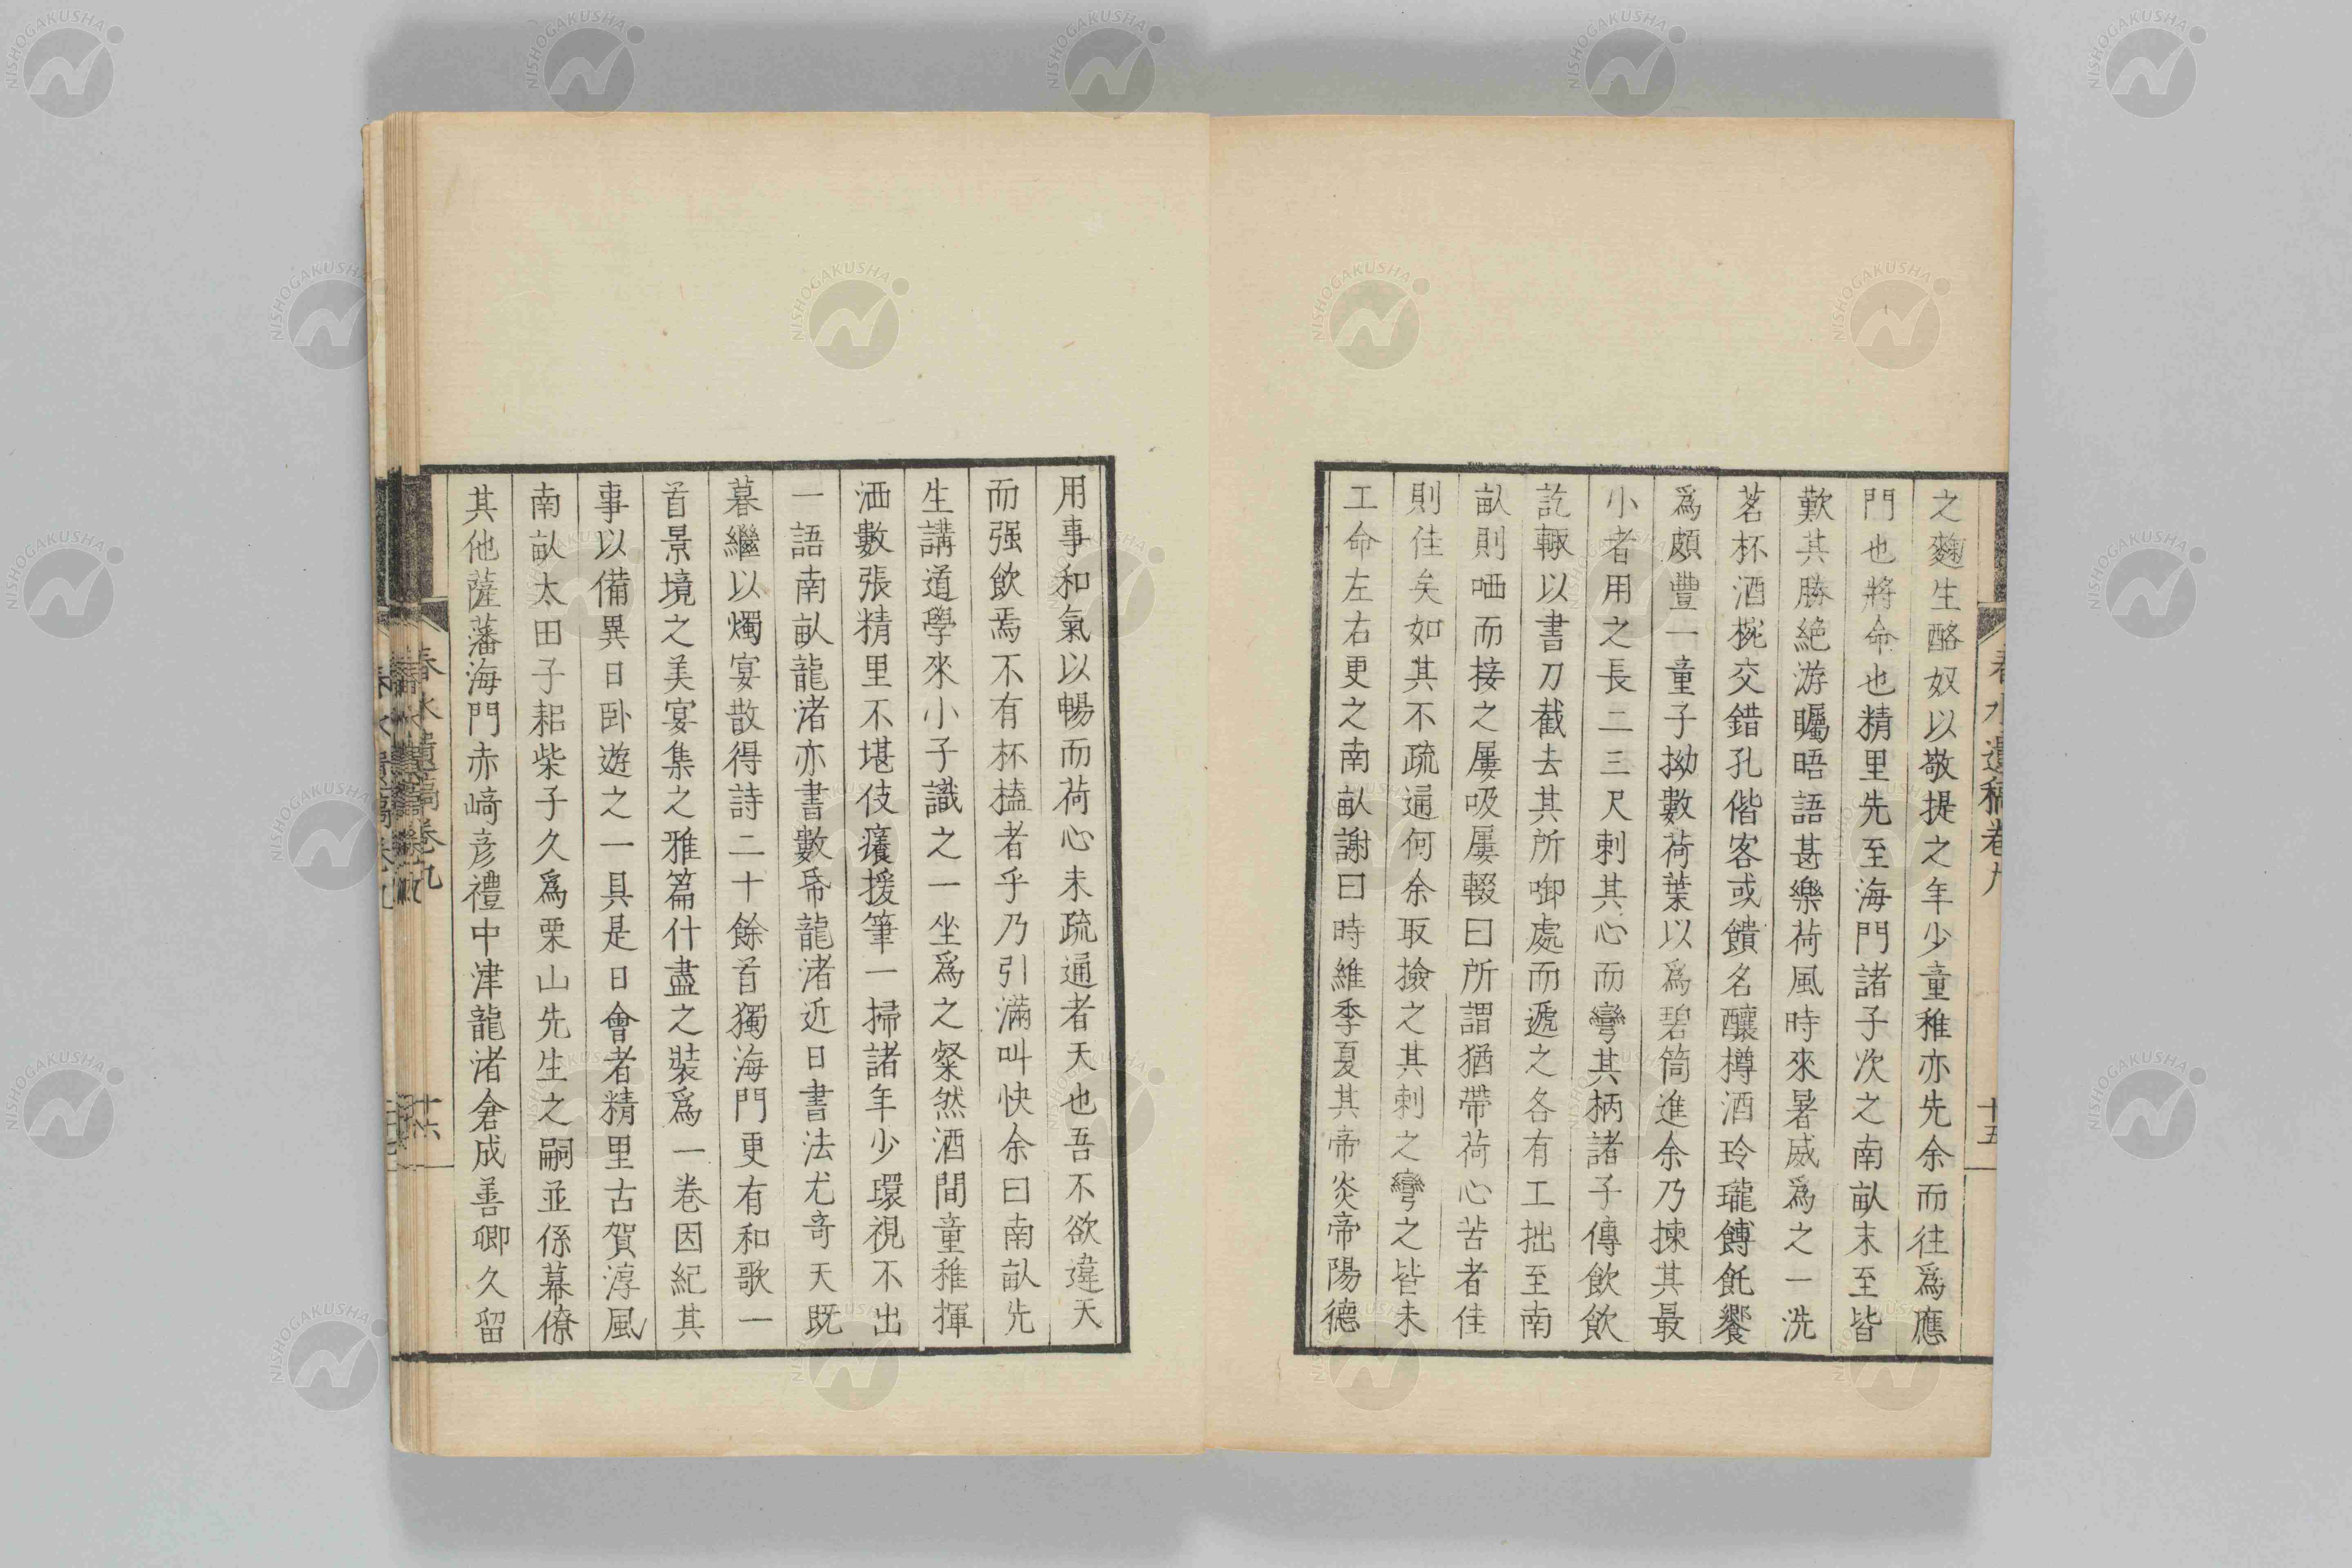 之麴生酪奴以敬提之年少童稚亦先余而往爲應
門也將命也精里先至海門諸子次之南畝末至皆
歎其勝絶游矚晤語甚樂荷風時來暑威爲之一洗
茗杯酒椀交錯孔偕客或饋名釀樽酒玲瓏餺飥饗
爲頗豐一童子拗數荷葉以爲碧筒進余乃揀其最
小者用之長二三尺刺其心而彎其柄諸子傳飲飲
訖輙以書刀截去其所啣處而遞之各有工拙至南
畝則哂而接之屢吸屢輟曰所謂猶帶荷心苦者佳
則佳矣如其不疏通何余取撿之其刺之彎之皆未
工命左右更之南畝謝曰時維季夏其帝炎帝陽德
春水遺稿卷九
十五
用事和氣以暢而荷心未疏通者天也吾不欲違天
而强飲焉不有杯榼者乎乃引滿叫快余曰南畝先
生講道學來小子識之一坐爲之粲然酒間童稚揮
洒數張精里不堪伎癢援筆一掃諸年少環視不出
一語南畝龍渚亦書數帋龍渚近日書法尤奇天既
暮繼以燭宴散得詩二十餘首獨海門更有和歌一
首景境之美宴集之雅篇什盡之裝爲一卷因紀其
事以備異日卧遊之一具是日會者精里古賀淳風
南畝太田子耜柴子久爲栗山先生之嗣並係幕僚
其他薩藩海門赤﨑彦禮中津龍渚倉成善卿久留
春水遺稿卷九
十六
NISHOGAKUSHA